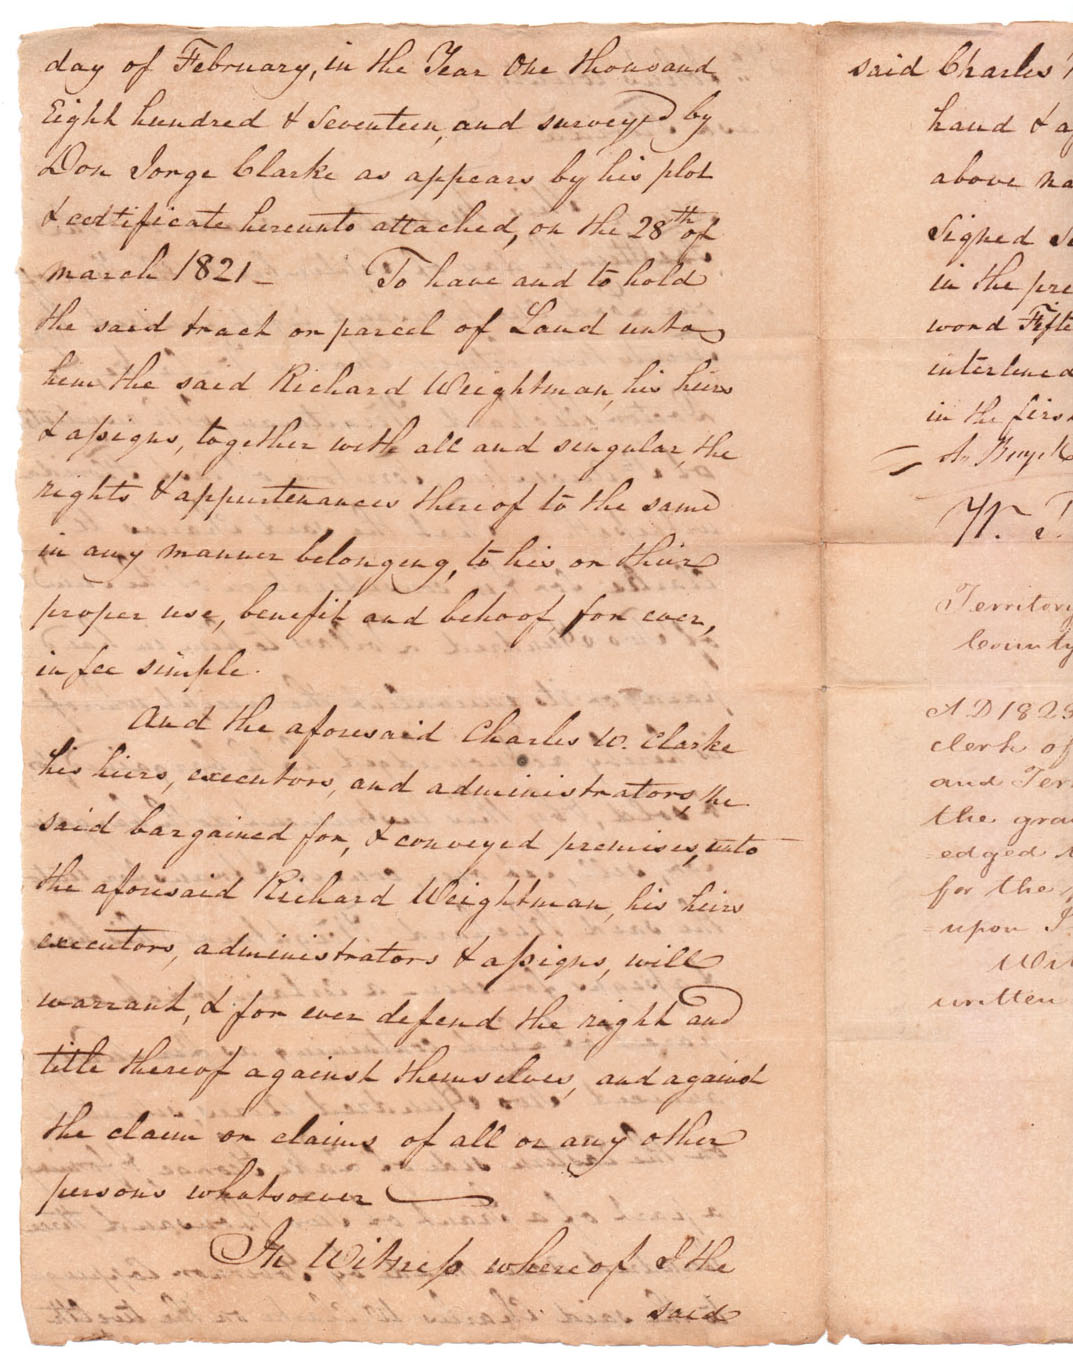 day of February, in the Year One thousand
Eight hundred & Seventeen, and surveyed by
Don Jorge Clarke as appears by his plot
& certificate hereunto attached, on the 28th of
march 1821 – To have and to hold
the said tract or parcel of Land unto
him the said Richard Weightman, his heirs
& assigns, together with all and singular, the
rights & appurtenances thereof to the same
in any manner belonging, to his or their
proper use, benefit and behoof, for ever,
in fee simple.
And the aforesaid Charles W. Clarke
his hiers, executors, and administrators, the
said bargained for, & conveyed premises, unto
the aforesaid Richard Weightman, his heirs
executors, administrators & assigns, will
warrant, & for ever defend the right and
title thereof against themselves, and against
the claim or claims of all or any other
persons whatsoever
In Witness whereof I the
said
said Charles
hand & a
above na
Signed Se
in the pre
word Fifte
interlined
in the firs
W.
Territory
County
A D 182
clerk of
and Terr
the gra
edged
for the
upon
Wi
written